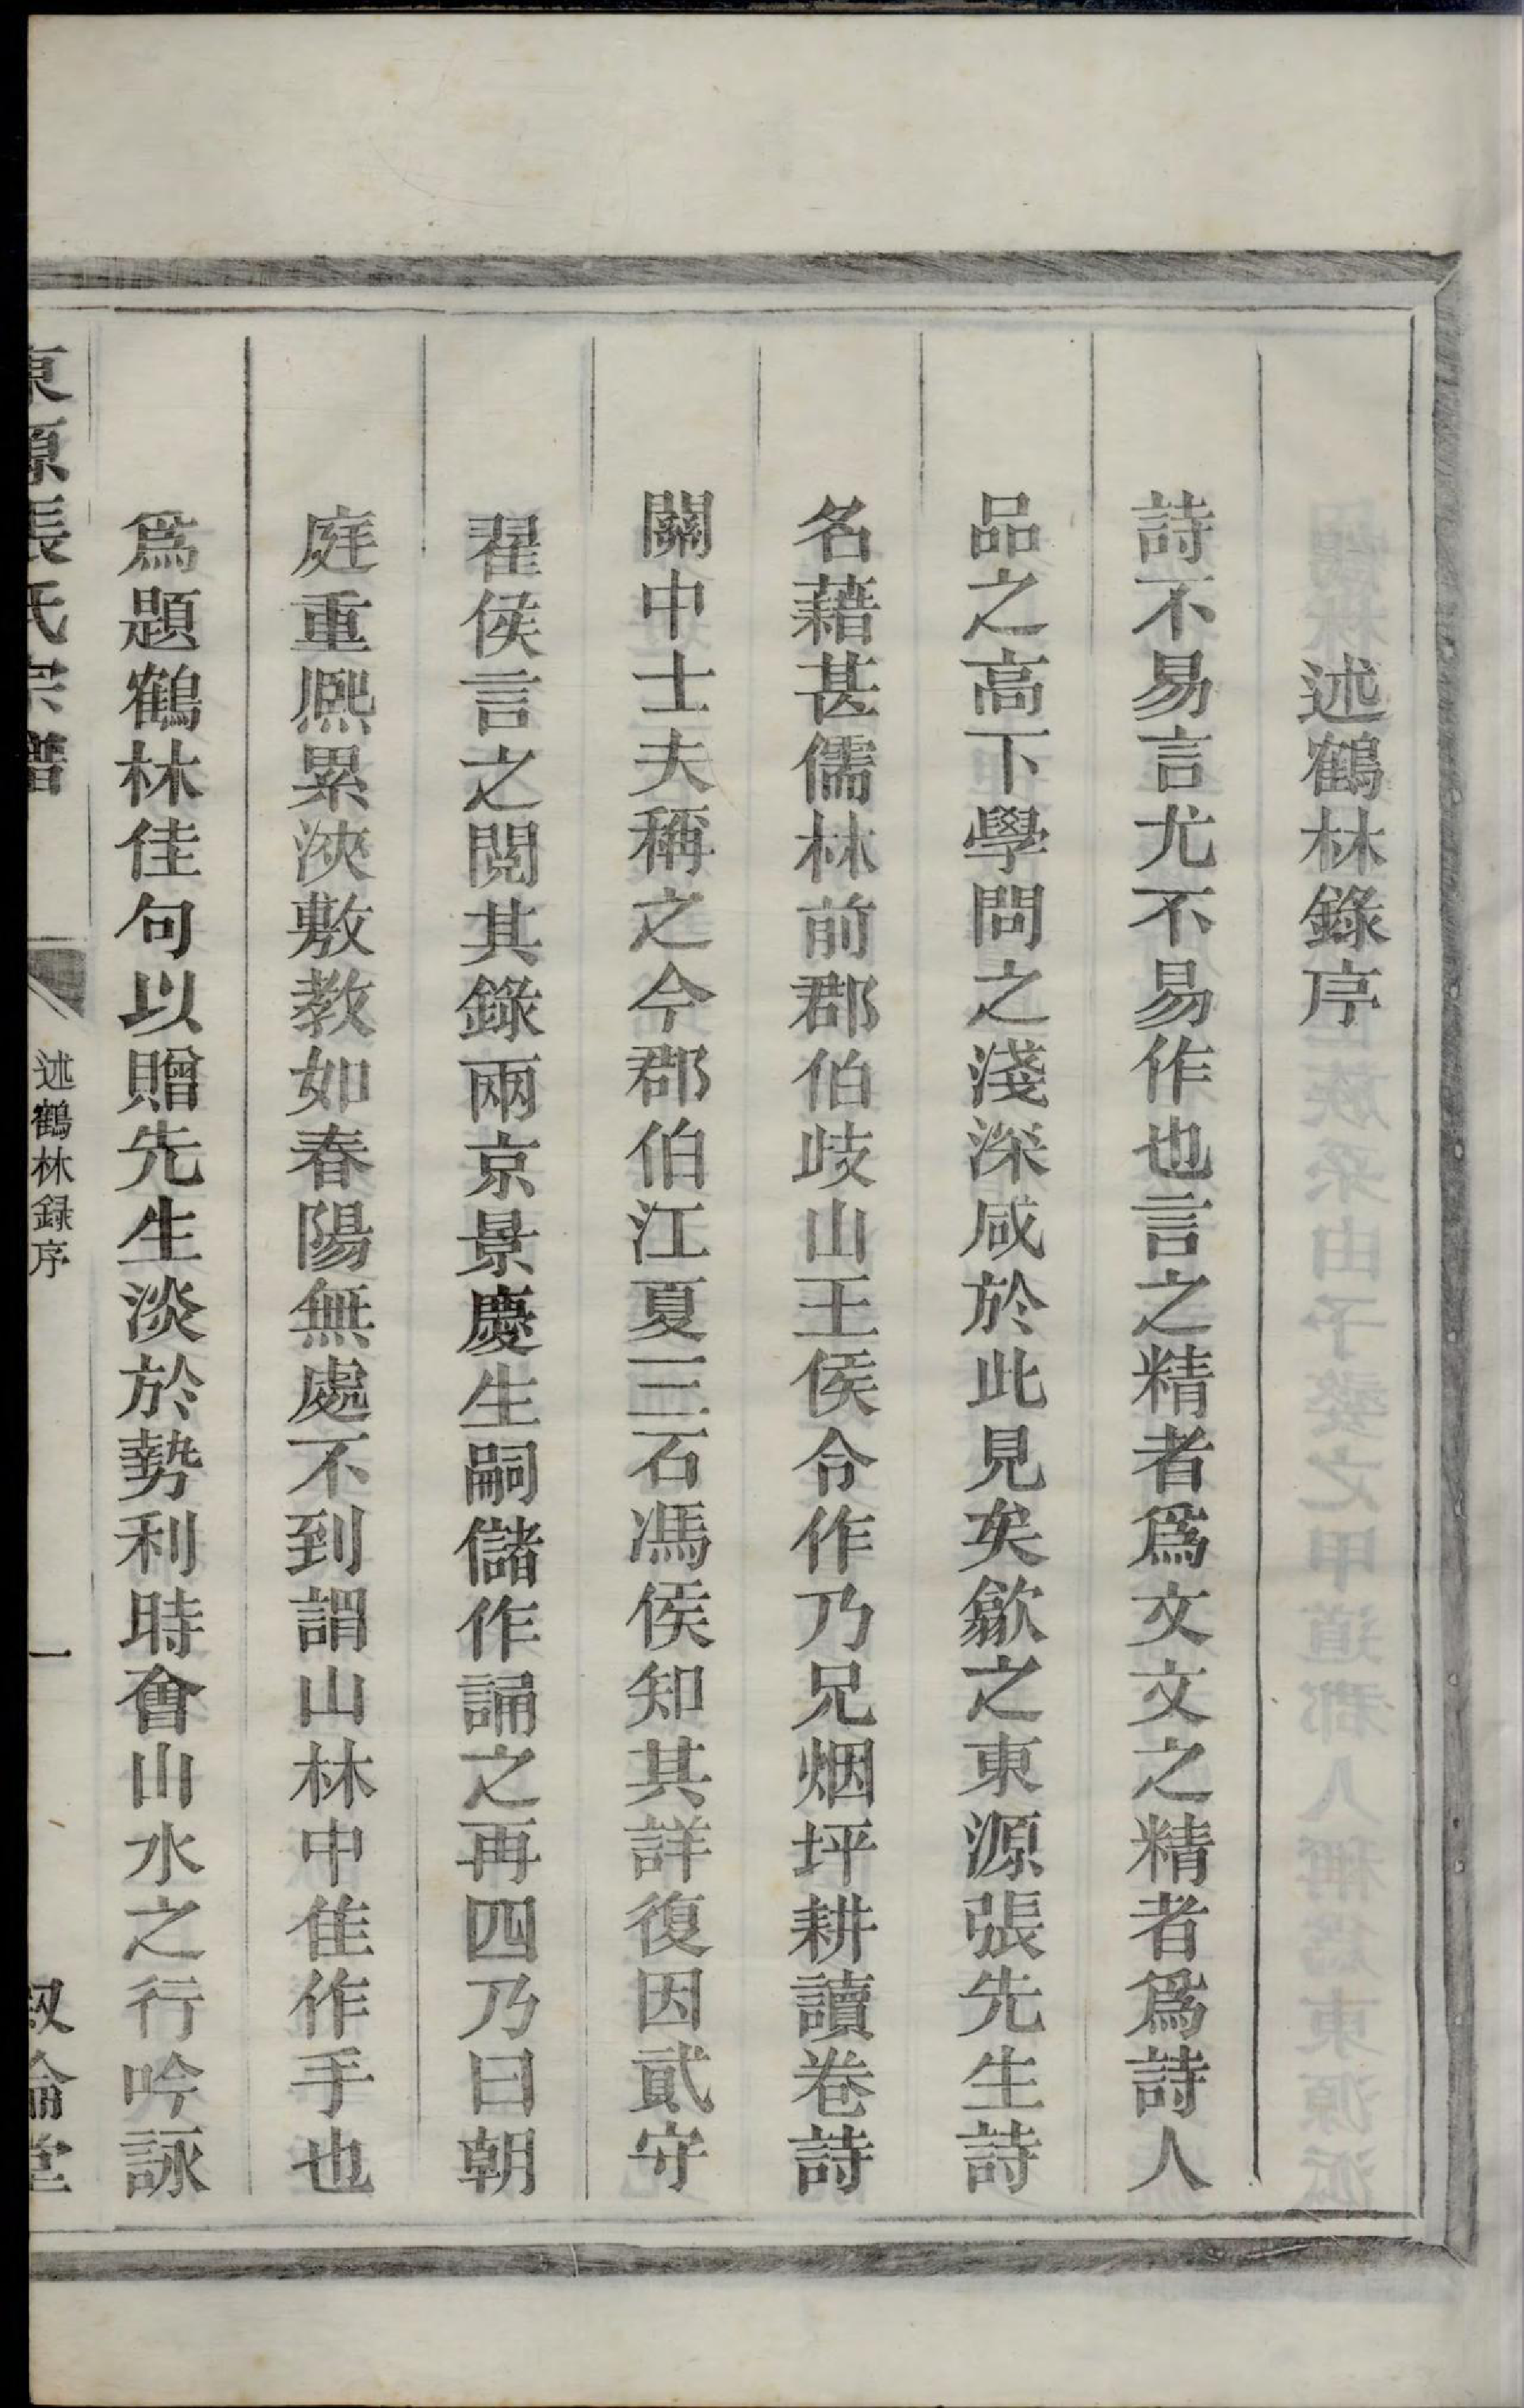 述鶴林錄序
詩不易言尤不易作也言之精者爲文文之精者爲詩人
品之高下學問之淺深咸於此見矣歙之東源張先生詩
名藉甚儒林前郡伯歧山王侯令作乃兄烟坪耕讀卷詩
關中士夫稱之今郡伯江夏三石馮侯知其詳復因貳守
翟侯言之閱其錄兩京景慶生嗣儲作誦之再四乃曰朝
庭重熈累浹敷教如春陽無處不到謂山林中佳作手也
爲題鶴林佳句以贈先生淡於勢利時會山水之行吟詠
東源張氏宗譜
述鶴林録序
一
叙倫堂